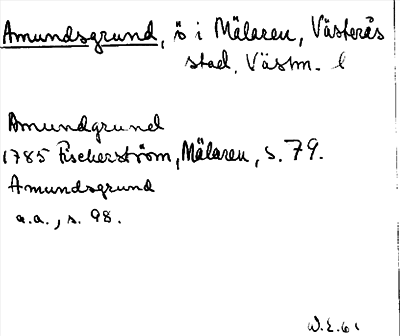 Amundsgrund, ö i Mälaren, Västerås
stad, Västm. l
Amundgrund
1785 Fischerström, Mälaren, s. 79.
Amundsgrund
a.a., s. 98.
W.E. 61